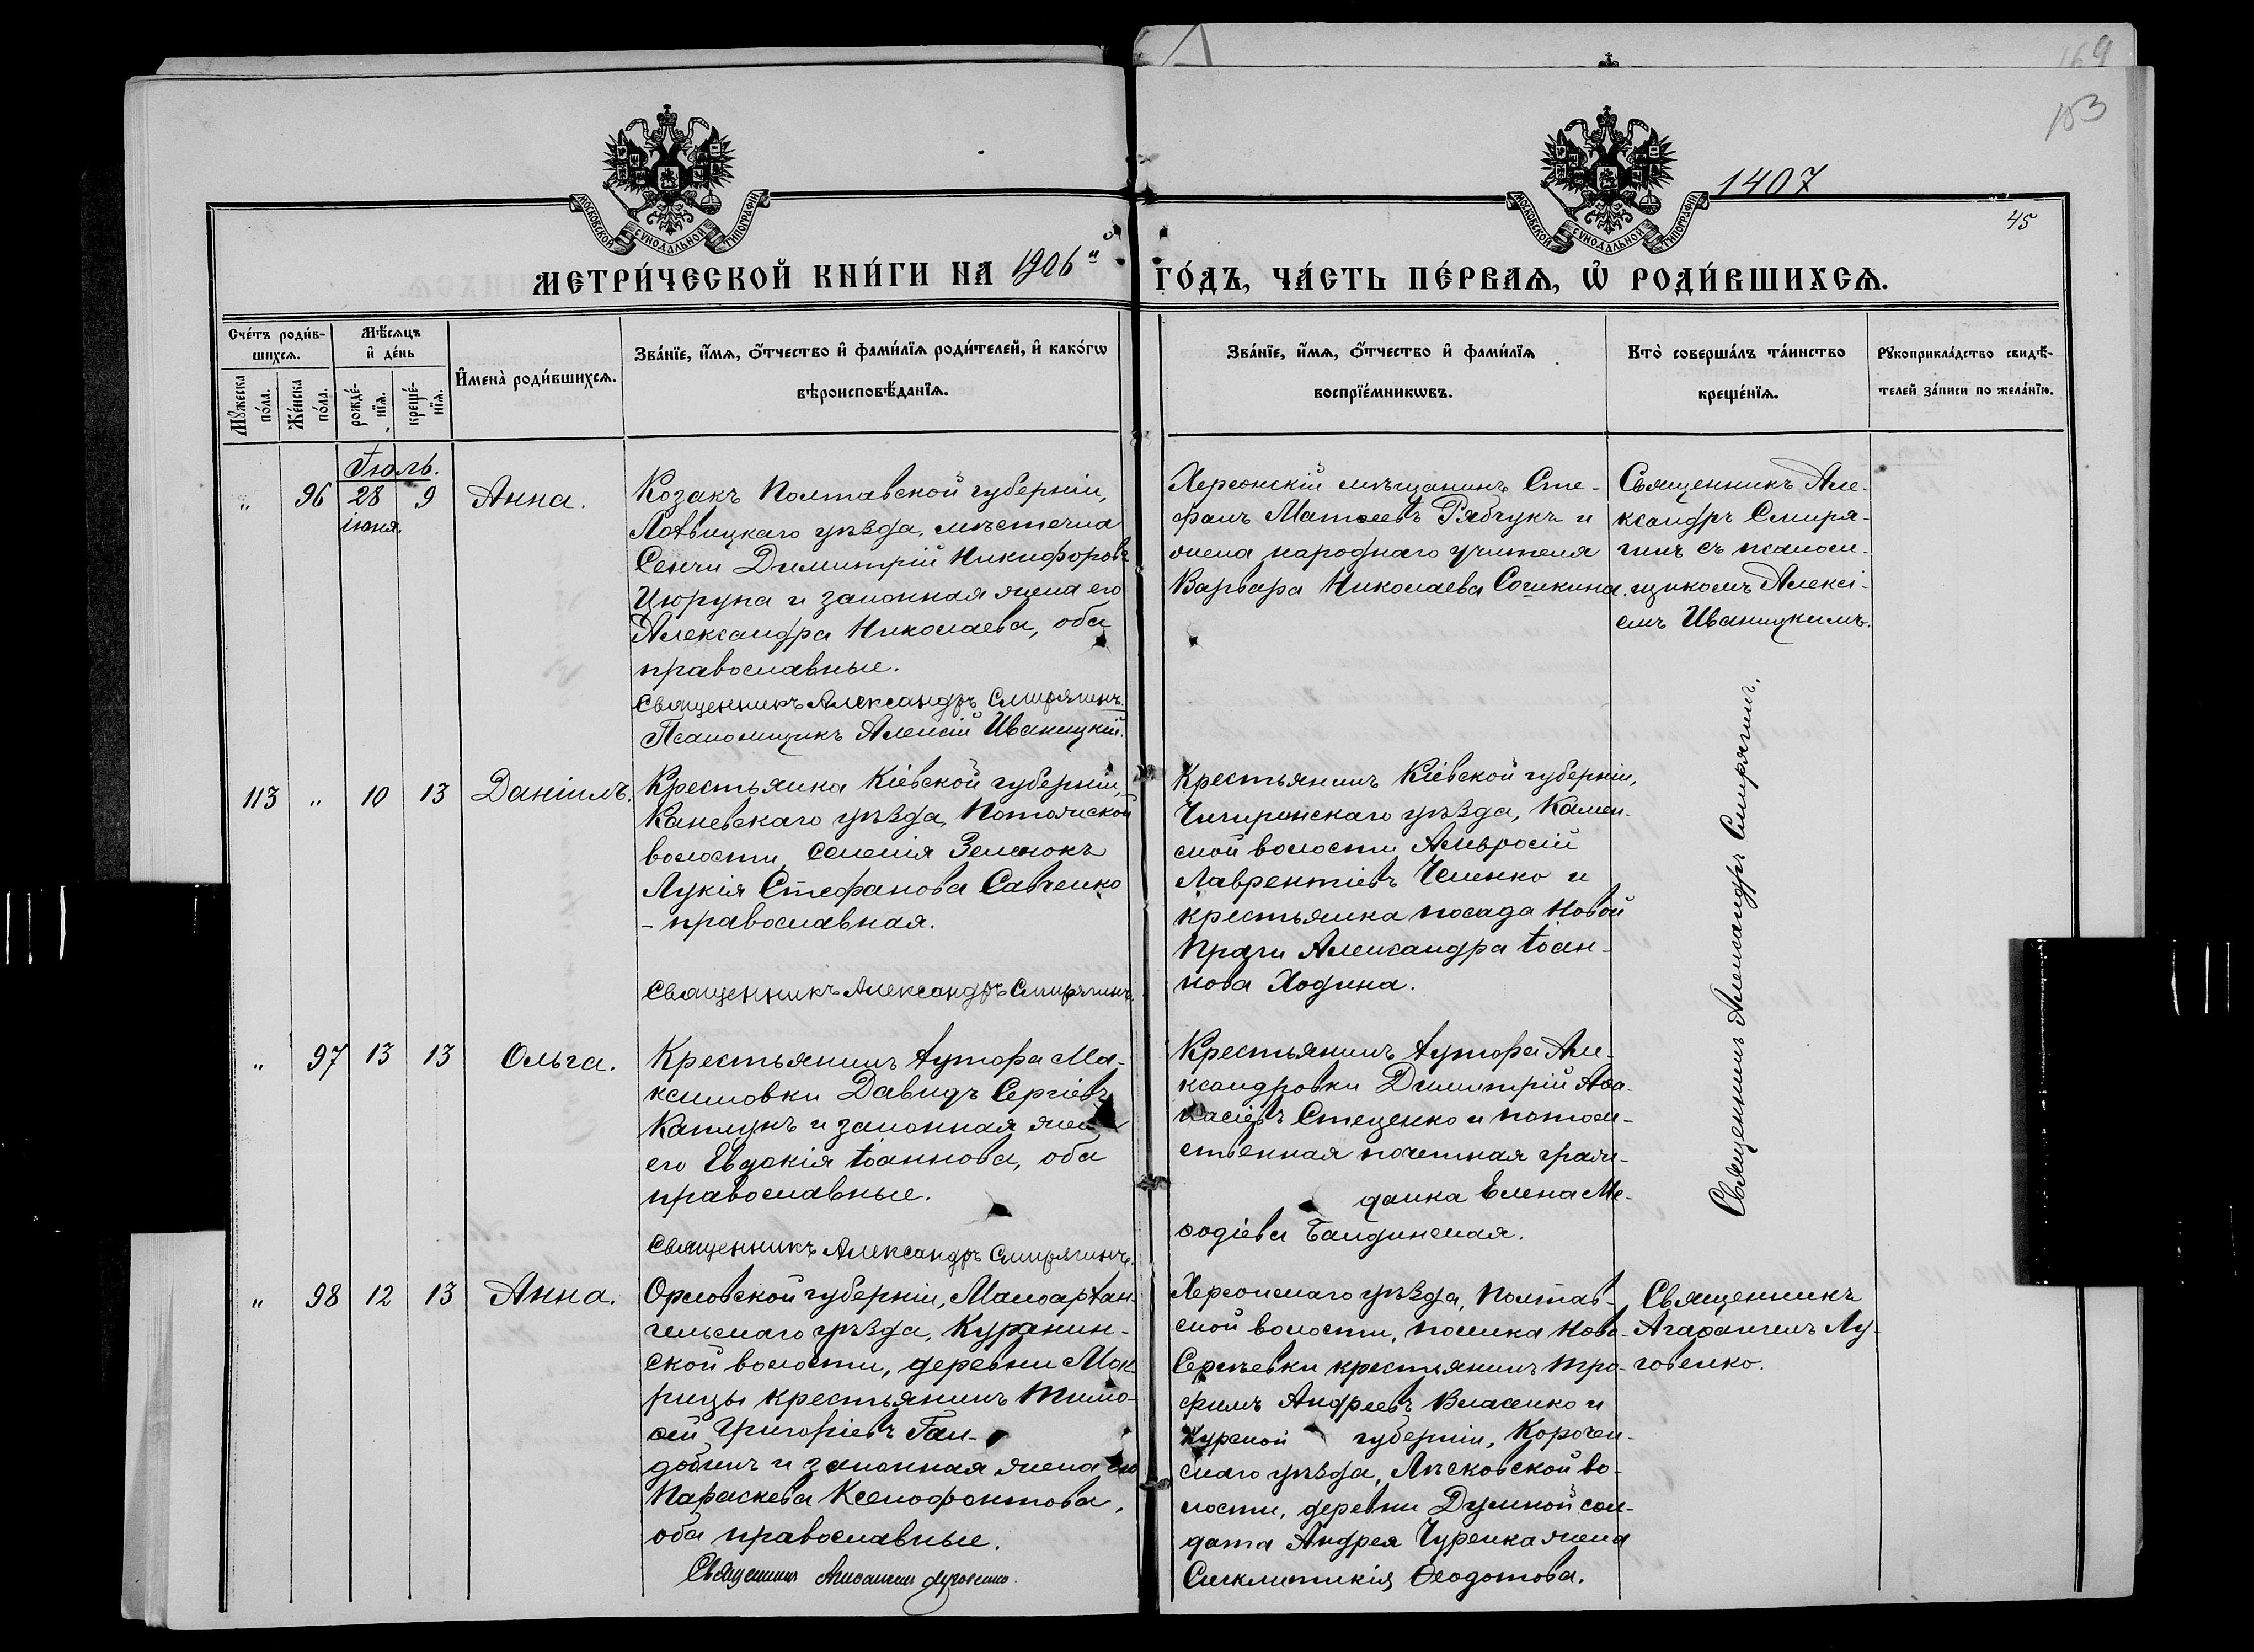 169
153
1407
45
МОСКОВСКОЙ СѴНОДАЛЬНОЙ ТИПОГРАФІИ
МОСКОВСКОЙ СѴНОДАЛЬНОЙ ТИПОГРАФІИ
МЕТРИ́ЧЕСКОЙ КНИ́ГИ НА 1906й
ГО́ДЪ, ЧА́СТЬ ПЕ́РВАѦ, Ѡ҆ РОДИ́ВШИХСѦ.
Сче́тъ роди́в-
шихсѧ.
Мꙋ́жеска
по́ла.
Же́нска
по́ла.
Мѣ́сѧцъ
и҆ де́нь
рожде́-
нїѧ.
креще́-
нїѧ.
И҆мена̀ роди́вшихсѧ.
Зва́нїе, и҆́мѧ, ѻ҆́тчество и҆ фами́лїѧ роди́телей, и҆ како́гѡ
вѣроисповѣ́данїѧ.
Зва́нїе, и҆́мѧ, ѻ҆́тчество и҆ фами́лїѧ
воспрїе́мникѡвъ.
Кто̀ соверша́лъ та́инство
креще́нїѧ.
Рꙋкоприкла́дство свидѣ́-
телей за́писи по жела́нїю.
Іюль.
„ 96 28 9 Анна.
іюня.
Козакъ Полтавской губерніи,
Лохвицкаго уѣзда, мѣстечка
Сенчи Димитрій Никифоровъ
Цюрупа и законная жена его
Александра Николаева, оба
православные.
Священникъ Александръ Смирягинъ.
Псаломщикъ Алексій Иваницкій.
Херсонскій мѣщанинъ Сте-
фанъ Матѳеевъ Рябчукъ и
жена народнаго учителя
Варвара Николаева Сошкина.
Священникъ Але-
ксандръ Смиря-
гинъ съ псалом-
щикомъ Алексі-
емъ Иваницкимъ.
113 „ 10 13 Даніилъ.
Крестьянка Кіевской губерніи,
Каневскаго уѣзда, Потокской
волости, селенія Зеленокъ
Лукія Стефанова Савченко
- православная.
Священникъ Александръ Смирягинъ.
Крестьянинъ Кіевской губерніи,
Чигиринскаго уѣзда, Камен-
ской волости Амвросій
Лаврентіевъ Чешенко и
крестьянка посада Новой
Праги Александра Іоан-
нова Ходина.
Священникъ Александръ Смирягинъ.
„ 97 13 13 Ольга.
Крестьянинъ хутора Ма-
ксимовки Давидъ Сергіевъ
Каплунъ и законная жена
его Евдокія Іоаннова, оба
православные.
Священникъ Александръ Смирягинъ.
Крестьянинъ хутора Але-
ксандровки Димитрій Аѳа-
насіевъ Стеценко и потом-
ственная почетная граж-
данка Елена Ме-
ѳодіева Байдинская.
„ 98 12 13 Анна.
Орловской губерніи, Малоархан-
гельскаго уѣзда, Куракин-
ской волости, деревни Мок-
рицы крестьянинъ Тимо-
ѳей Григоріевъ Ган-
добинъ и законная жена его
Параскева Ксенофонтова,
оба православные.
Священникъ Агаѳангелъ Луговенко.
Херсонскаго уѣзда, Полтав-
ской волости, поселка Ново-
Сергѣевки крестьянинъ Тро-
фимъ Андреевъ Власенко и
Курской губерніи, Корочан-
скаго уѣзда, Лѣсковской во-
лости, деревни Думной сол-
дата Андрея Чуренка жена
Синклитикія Ѳеодотова.
Священникъ
Агаѳангелъ Лу-
говенко.